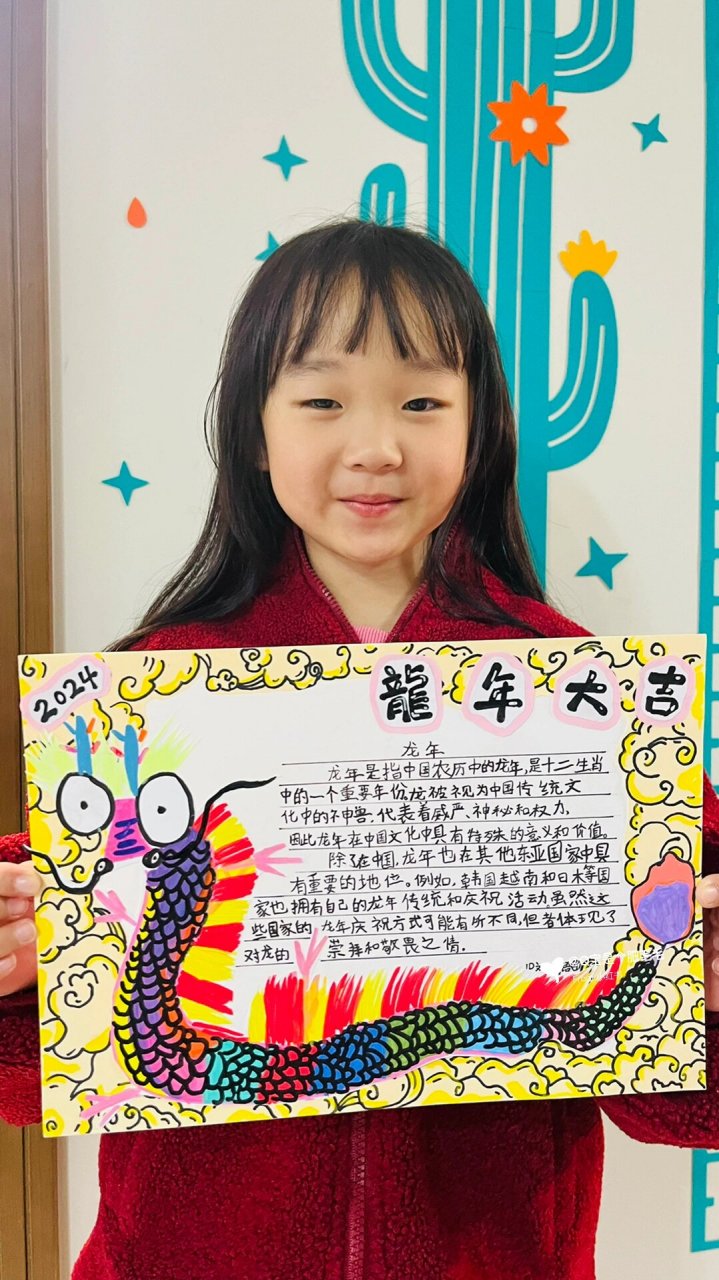 2024
龍年大吉
龙年
龙年是指中国农历中的龙年,是十二生肖
中的一个重要年份,龙被视为中国传统文
化中的神兽,代表着威严、神秘和权力,
因此龙年在中国文化中具有特殊的意义和价值。
除了在中国,龙年也在其他东亚国家中具
有重要的地位。例如,韩国越南和日本等国
家也拥有自己的龙年传统和庆祝活动,虽然这
些国家的龙年庆祝方式可能有所不同,但者体现了
对龙的崇拜和敬畏之情.